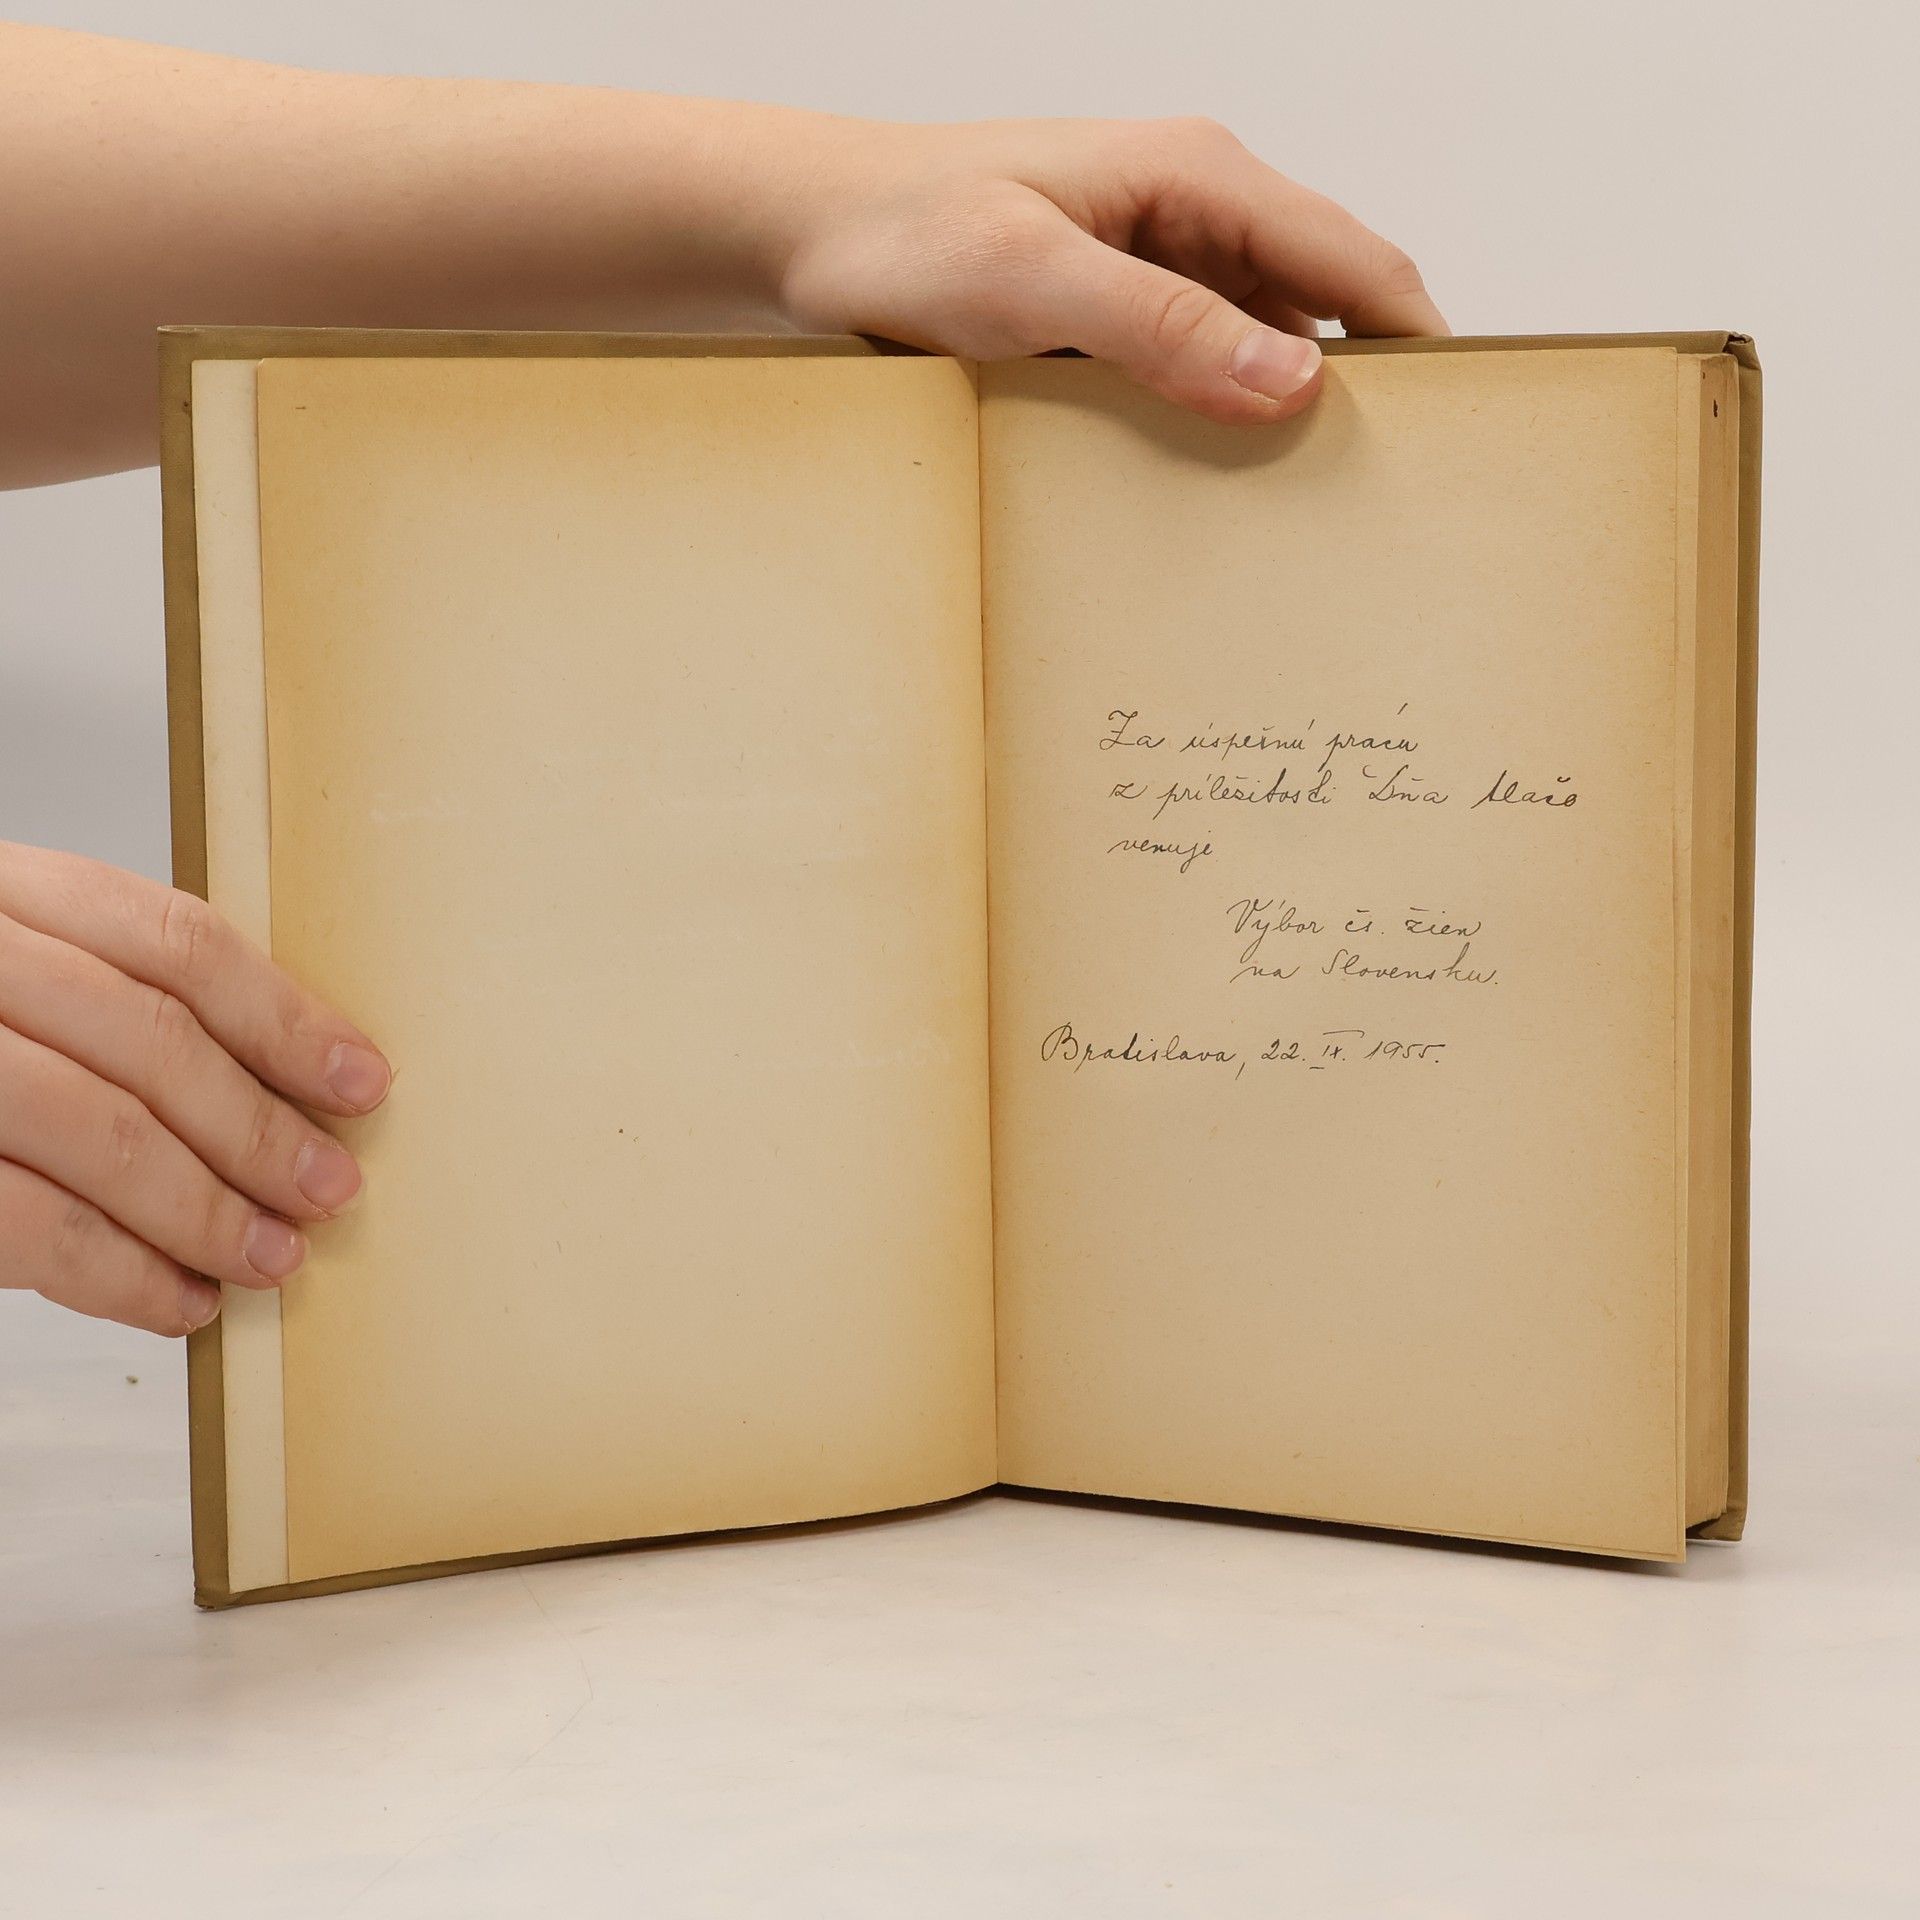 Za úspešnú prácu
z príležitosti Dňa tlače
venuje
Výbor čs. žien
na Slovensku.
Bratislava, 22. IX. 1955.